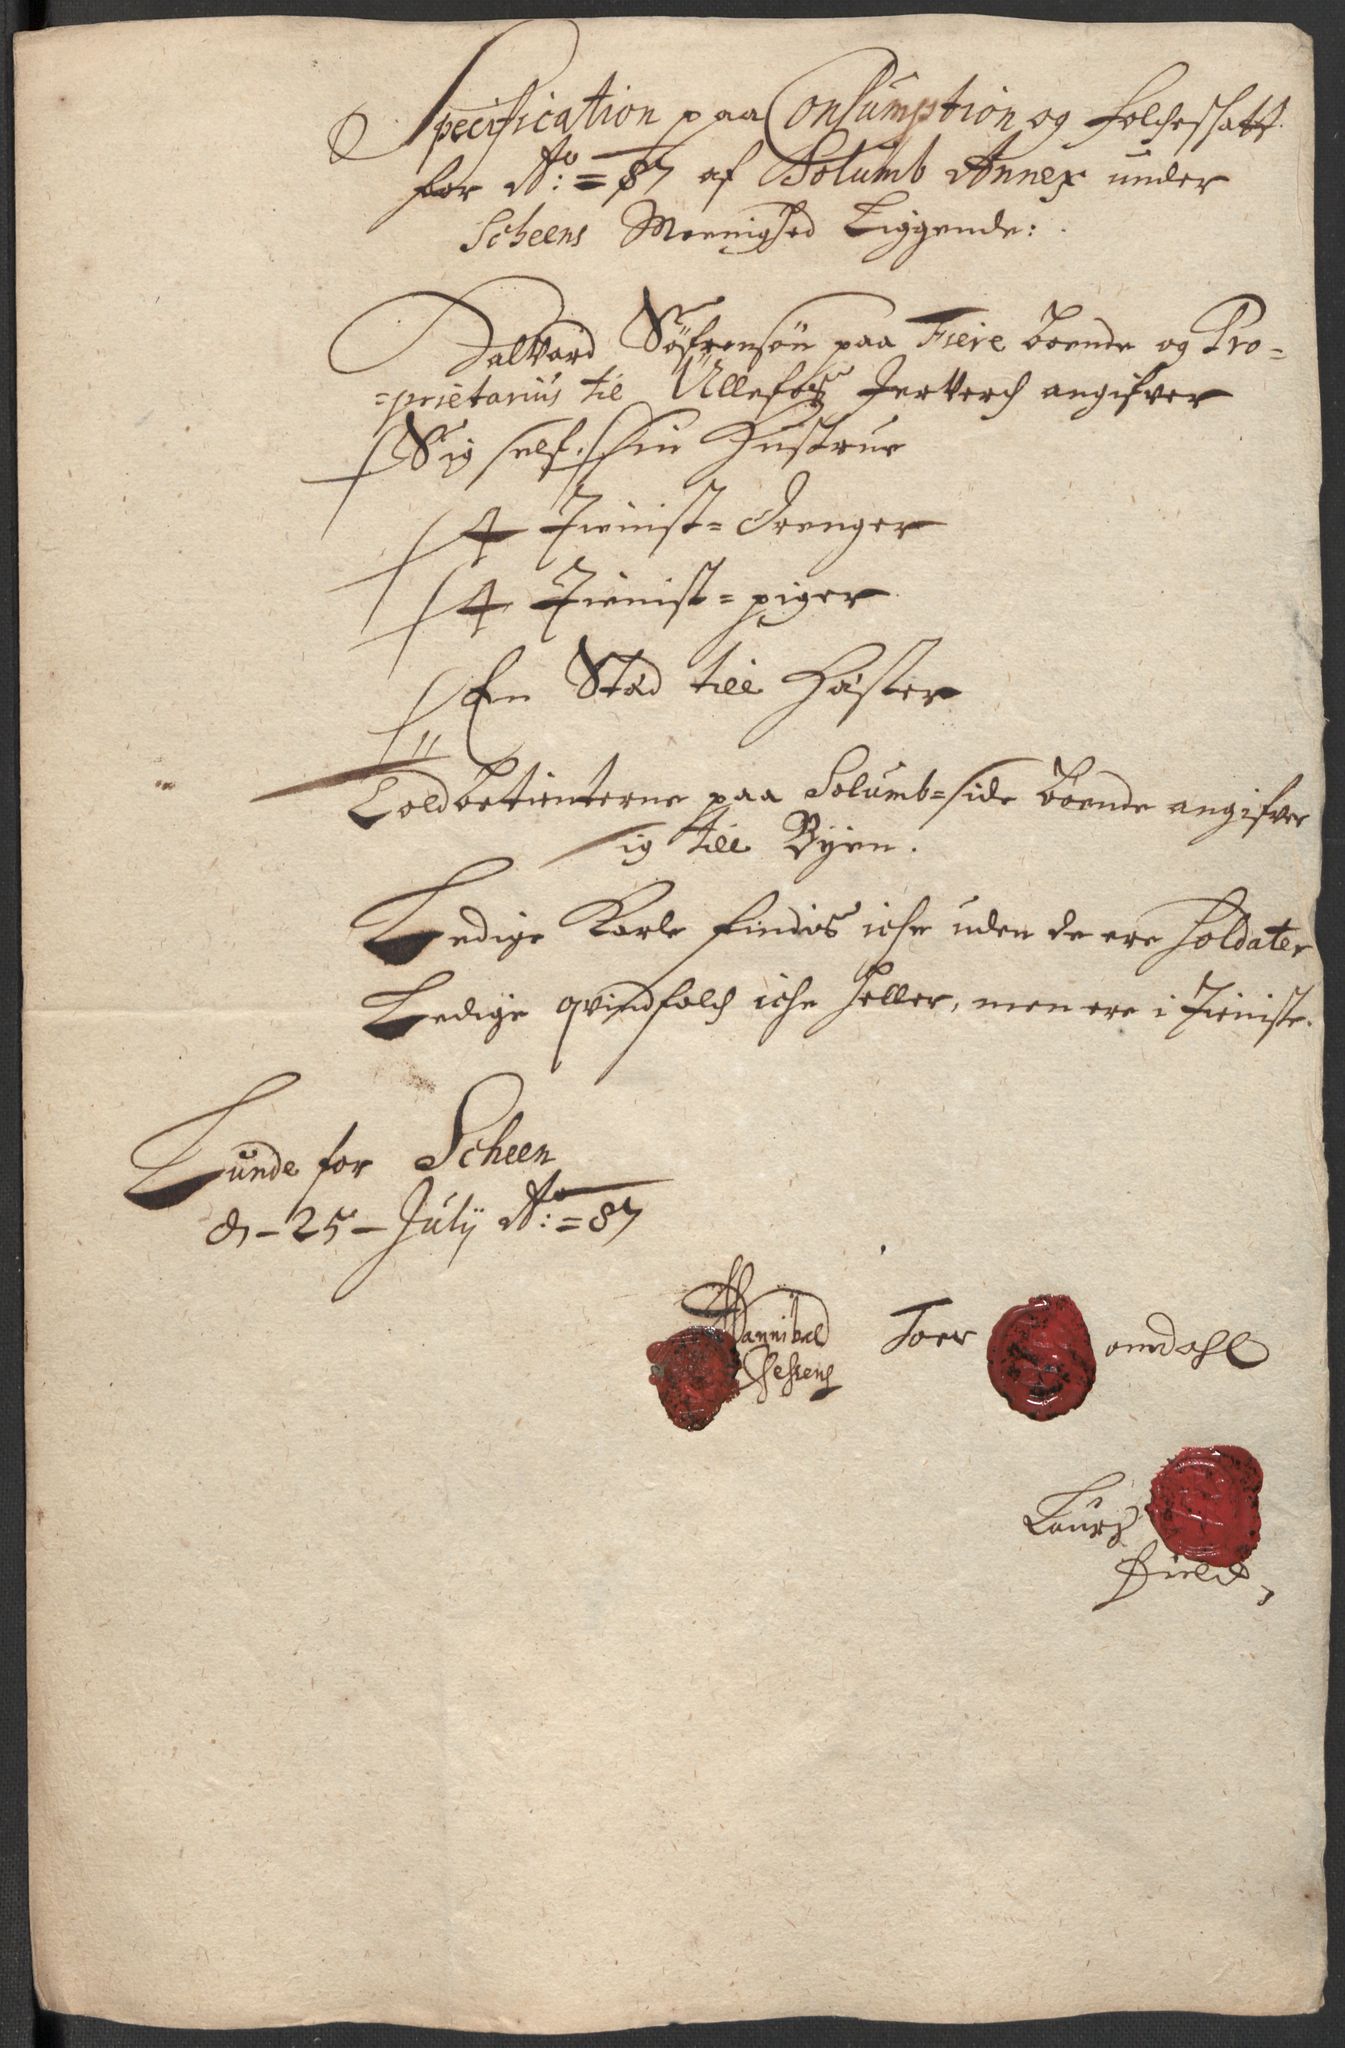 Specification paa Consumption og folchesskatt
for Ao: = 87 af Solumb Annex under
Scheens Meenighed Liggende:
Halvard Söfrensön paa Fiere boende og Pro=
=prietarius til Ullefos Jerverch angifver
Sig self. Sin Hustrue
4 Tienist= drenger
4 Tienist= piger
En Stad till Hæster
Toldbetienterne paa Solumb=side boende angifver
sig till Byen.
Ledige Karle findis iche uden de ere Soldater
Ledige qvindfolch iche heller, men ere i Tieniste.
Lunde for Scheen
d – 25 – Julij Ao: = 87
Hannibal Toer omdahl
Laurs